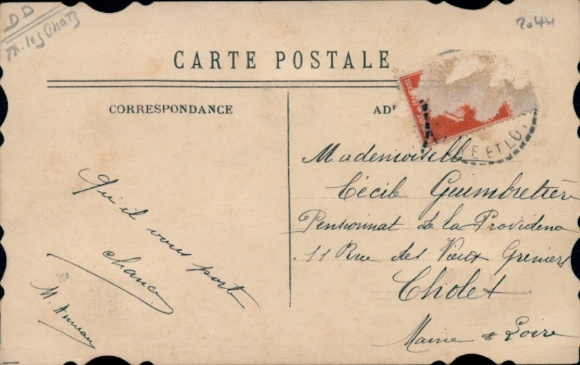 DD
2044
CARTE POSTALE
CORRESPONDANCE
AD
E ET LO
Qu'il vous port
chance
M.
Mademoisell
Cécile Guimbretière
Pensionnat de la Providence
11 Rue des Vieux Greniers
Cholet
Maine & Loire